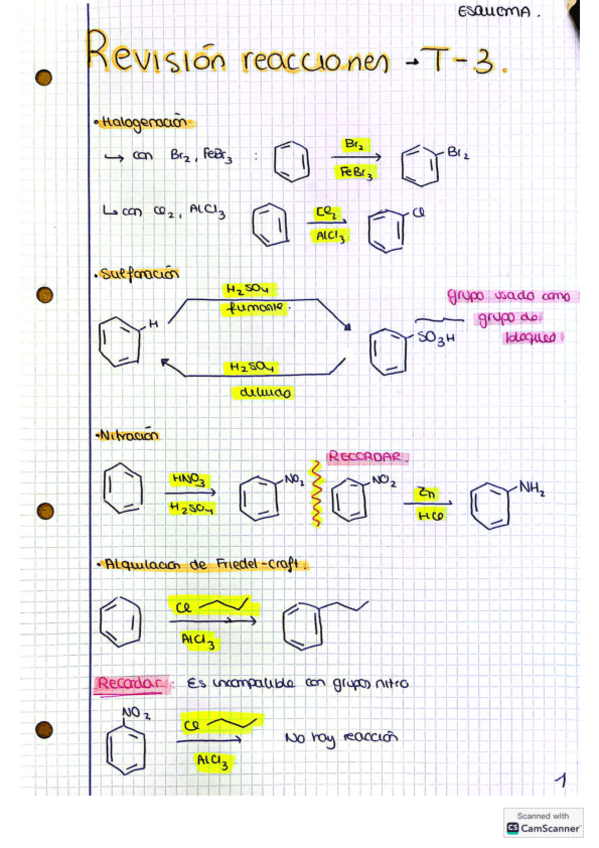 ESQUEMA.
Revisión reacciones → T-3.
• Halogenación
↳ con Br₂, FeBr₃ :
Br₂
FeBr₃
Br₂
↳ con Cl₂, AlCl₃
Cl₂
AlCl₃
Cl
• Sulfonación
H₂SO₄
fumante.
H
SO₃H
grupo usado como
grupo de
bloqueo
H₂SO₄
diluido
• Nitración
RECORDAR.
HNO₃
H₂SO₄
NO₂
NO₂
Zn
HCl
NH₂
• Alquilación de Friedel-Craft.
Cl
AlCl₃
Recordar: Es incompatible con grupos nitro
NO₂
Cl
AlCl₃
No hay reacción
1
Scanned with
CS CamScanner